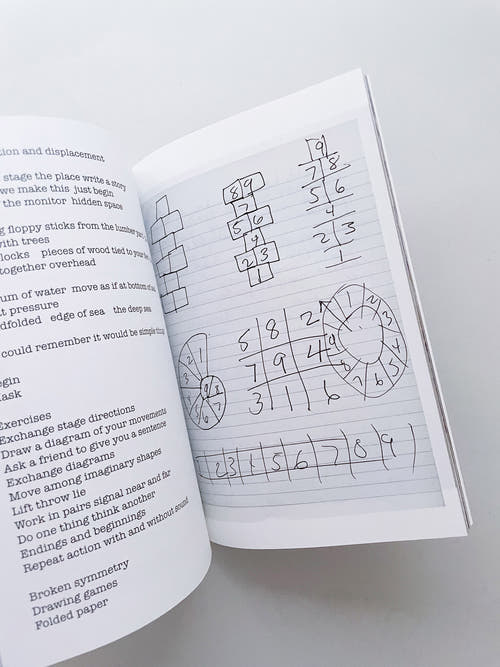 tion and displacement
stage the place write a story
we make this just begin
the monitor hidden space
g floppy sticks from the lumber
with trees
locks pieces of wood tied to your
together overhead
um of water move as if at bottom of sea
t pressure
dfolded edge of sea the deep sea
could remember it would be simple
egin
ask
Exercises
Exchange stage directions
Draw a diagram of your movements
Ask a friend to give you a sentence
Exchange diagrams
Move among imaginary shapes
Lift throw lie
Work in pairs signal near and far
Do one thing think another
Endings and beginnings
Repeat action with and without sound
Broken symmetry
Drawing games
Folded paper
8 9
7
5 6
4
2 3
1
9
7 8
5 6
4
2 3
1
2 1
3
9 8
7
6
5
8 2
7 9 4
3 1 6
1 2
3
4
5
6
7
8
9
2 3 4 5 6 7 8 9